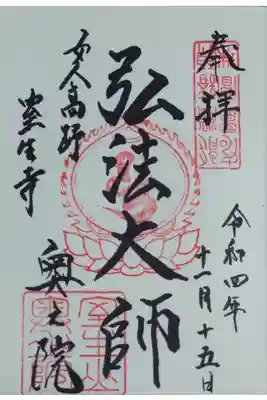 奉拝
令和四年
十一月十五日
弘法大師
女人高野
室生寺
奥之院